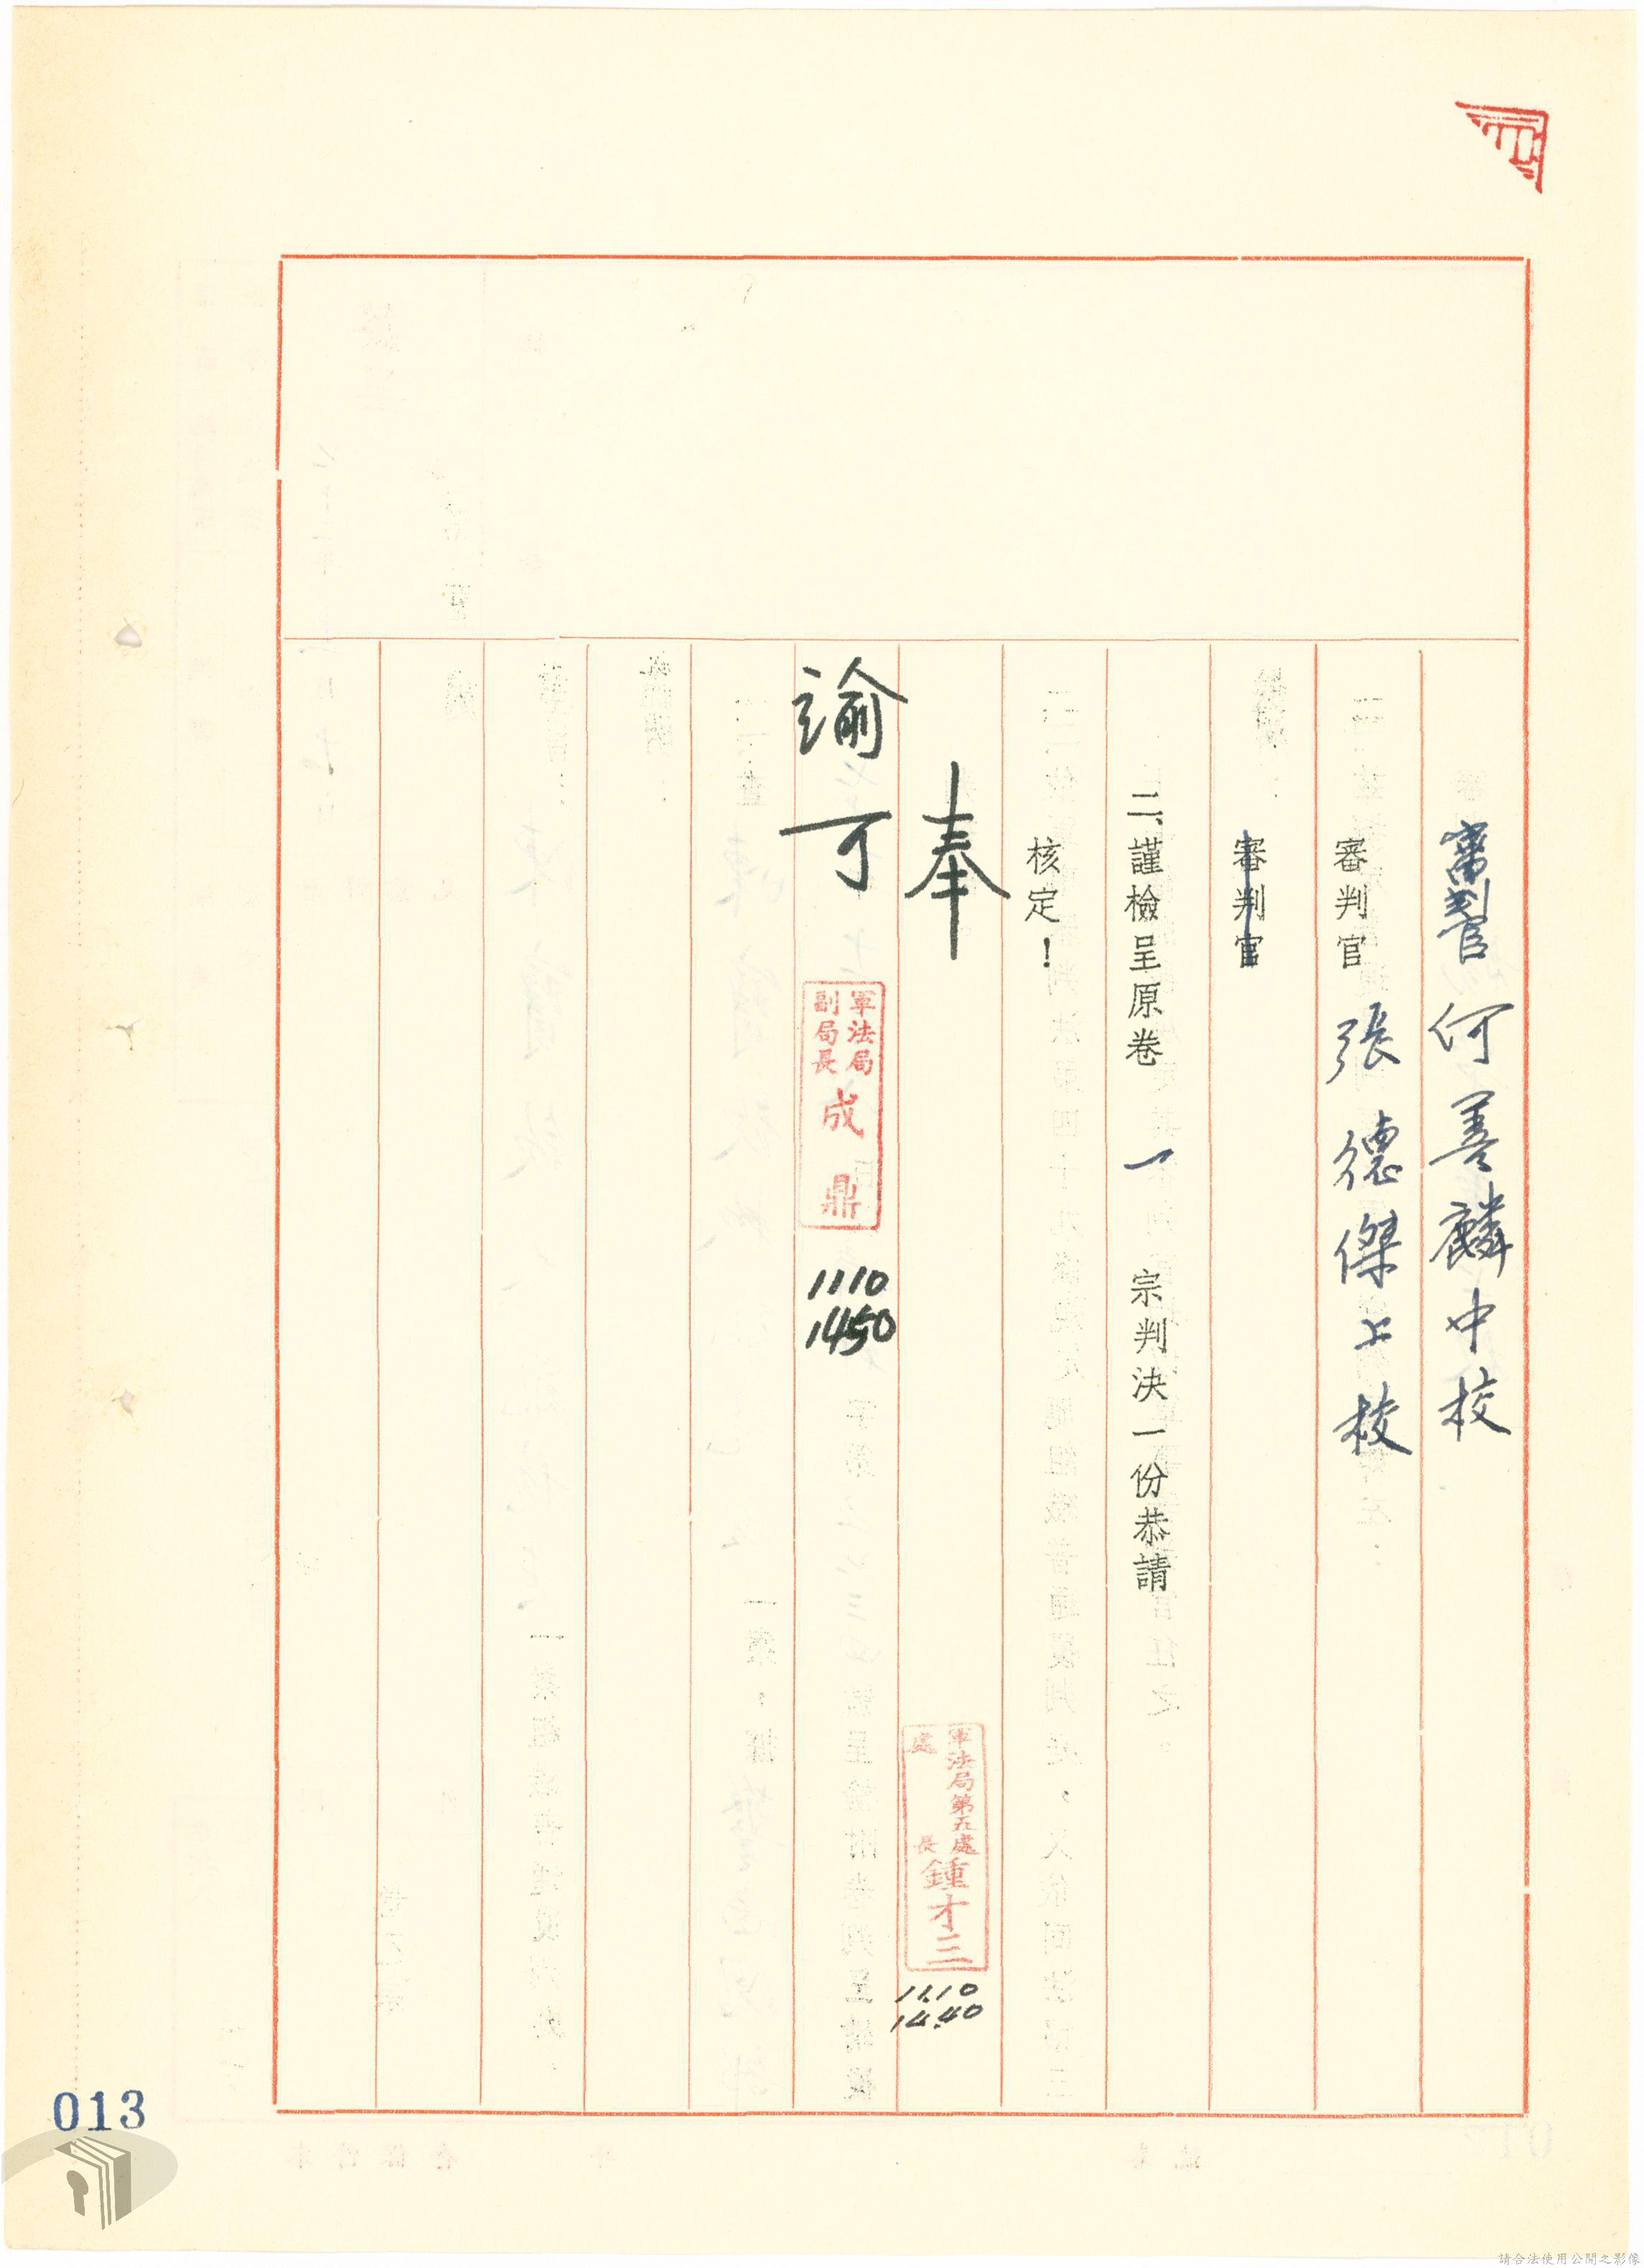 審判官 何善麟中校
審判官 張德傑上校
審判官
二、謹檢呈原卷 一 宗判決一份恭請
核定!
奉
諭可
軍法局
副局長
成鼎
1110
1450
軍法局第五處
處長
鍾才三
11.10
14.40
013
請合法使用公開之影像